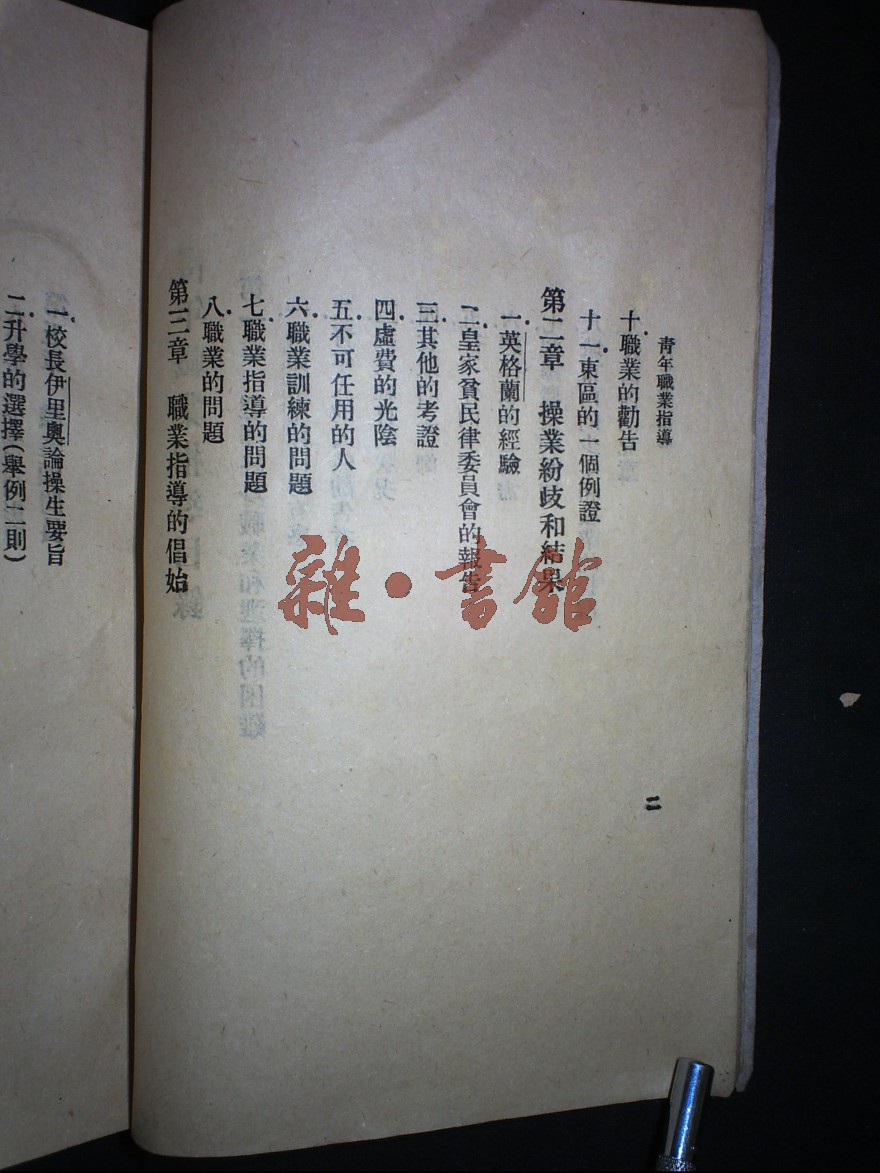 青年職業指導
十．職業的勸告
十一．東區的一個例證
第二章 操業紛歧和結果
一．英格蘭的經驗
二．皇家貧民律委員會的報告
三．其他的考證
四．虛費的光陰
五．不可任用的人
六．職業訓練的問題
七．職業指導的問題
八．職業的問題
第三章 職業指導的倡始
二
一．校長伊里奧論操生要旨
二．升學的選擇（舉例二則）
雜·書館